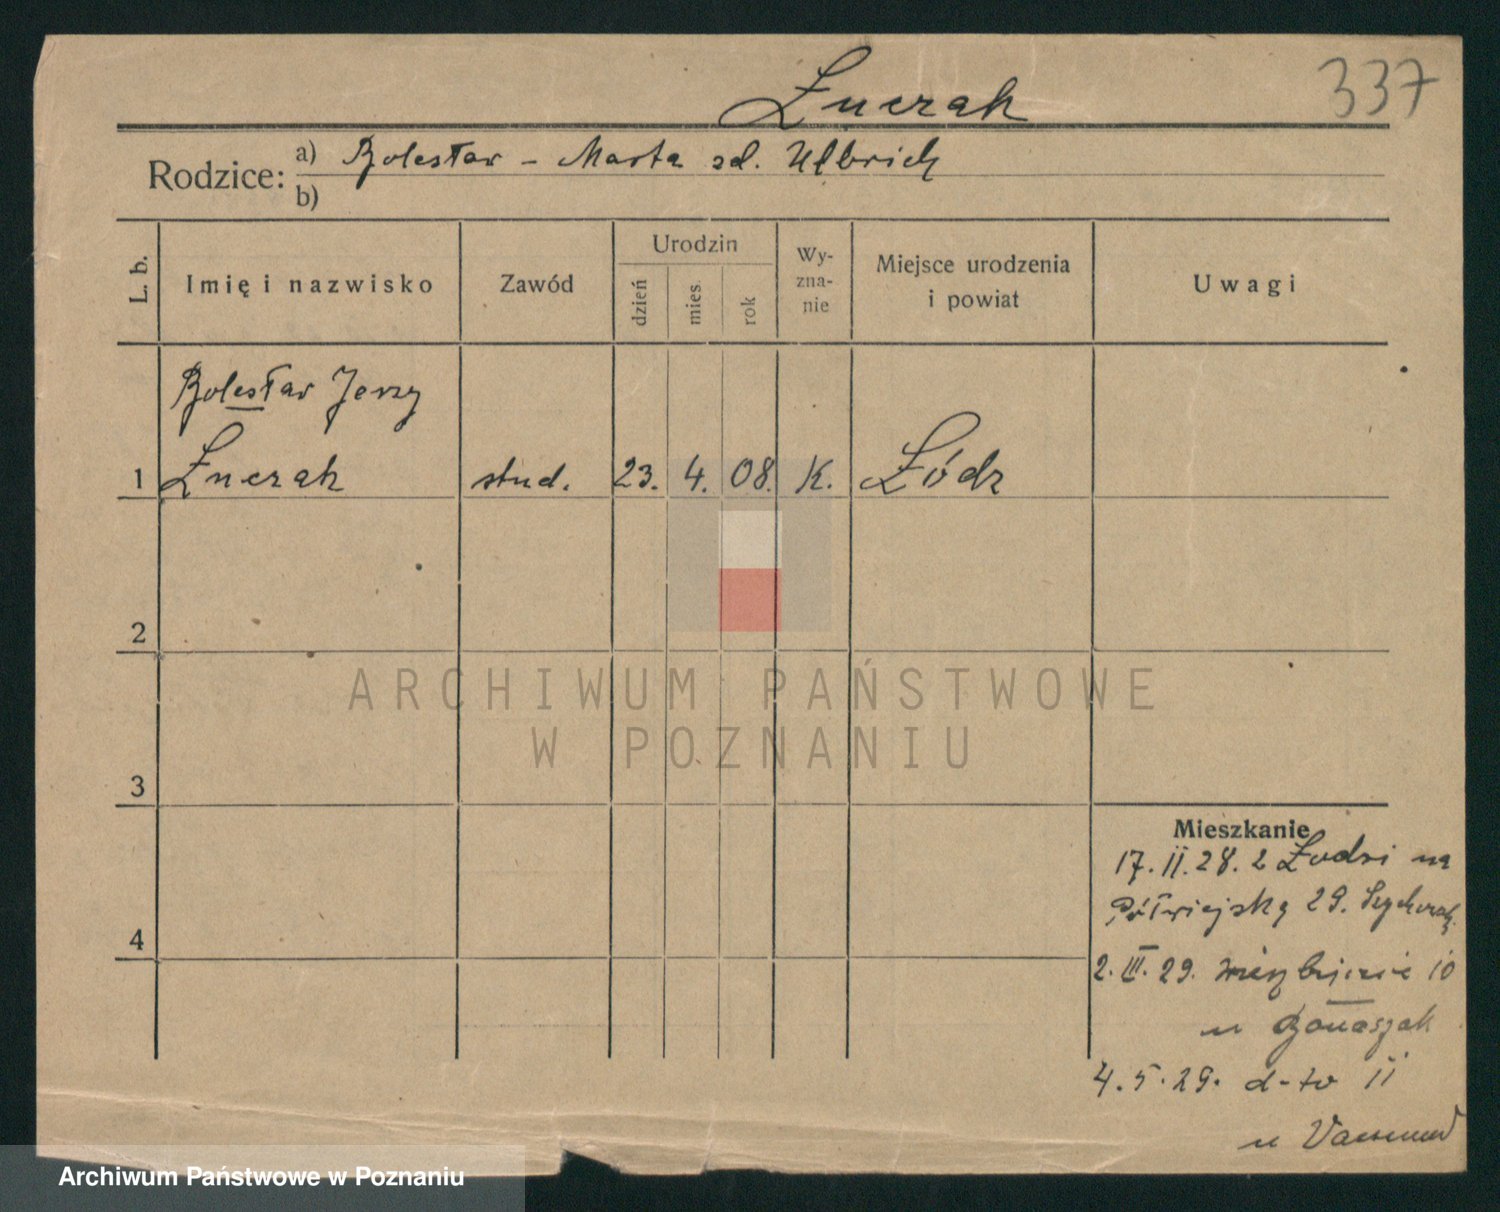 337
Łuczak
Rodzice: a) Bolesław - Marta zd. Ulbrich
b)
L. b.
Imię i nazwisko
Zawód
Urodzin
dzień
mies.
rok
Wy-
zna-
nie
Miejsce urodzenia
i powiat
Uwagi
Bolesław Jerzy
1 Łuczak stud. 23. 4. 08. K. Łódź
2
3
4
ARCHIWUM PAŃSTWOWE
W POZNANIU
Mieszkanie
17.II.28. z Łodzi na
Półwiejską 29.
2.III.29. 10
u
4.5.29. d-to 11
u
Archiwum Państwowe w Poznaniu